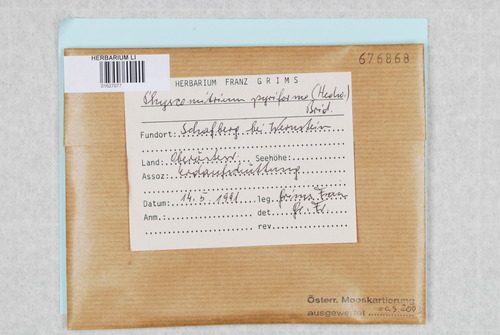 HERBARIUM LI
676868
HERBARIUM FRANZ GRIMS
Physcomitrium pyriforme (Hedw.)
Brid.
Fundort: Schafberg bei Wernstein
Land: Oberösterr. Seehöhe:
Assoz: Erdaufschüttung
Datum: 14.5.1981 leg. Grims Franz
Anm.: det. Gr. Fr.
rev.
Österr. Mooskartierung
ausgewertet